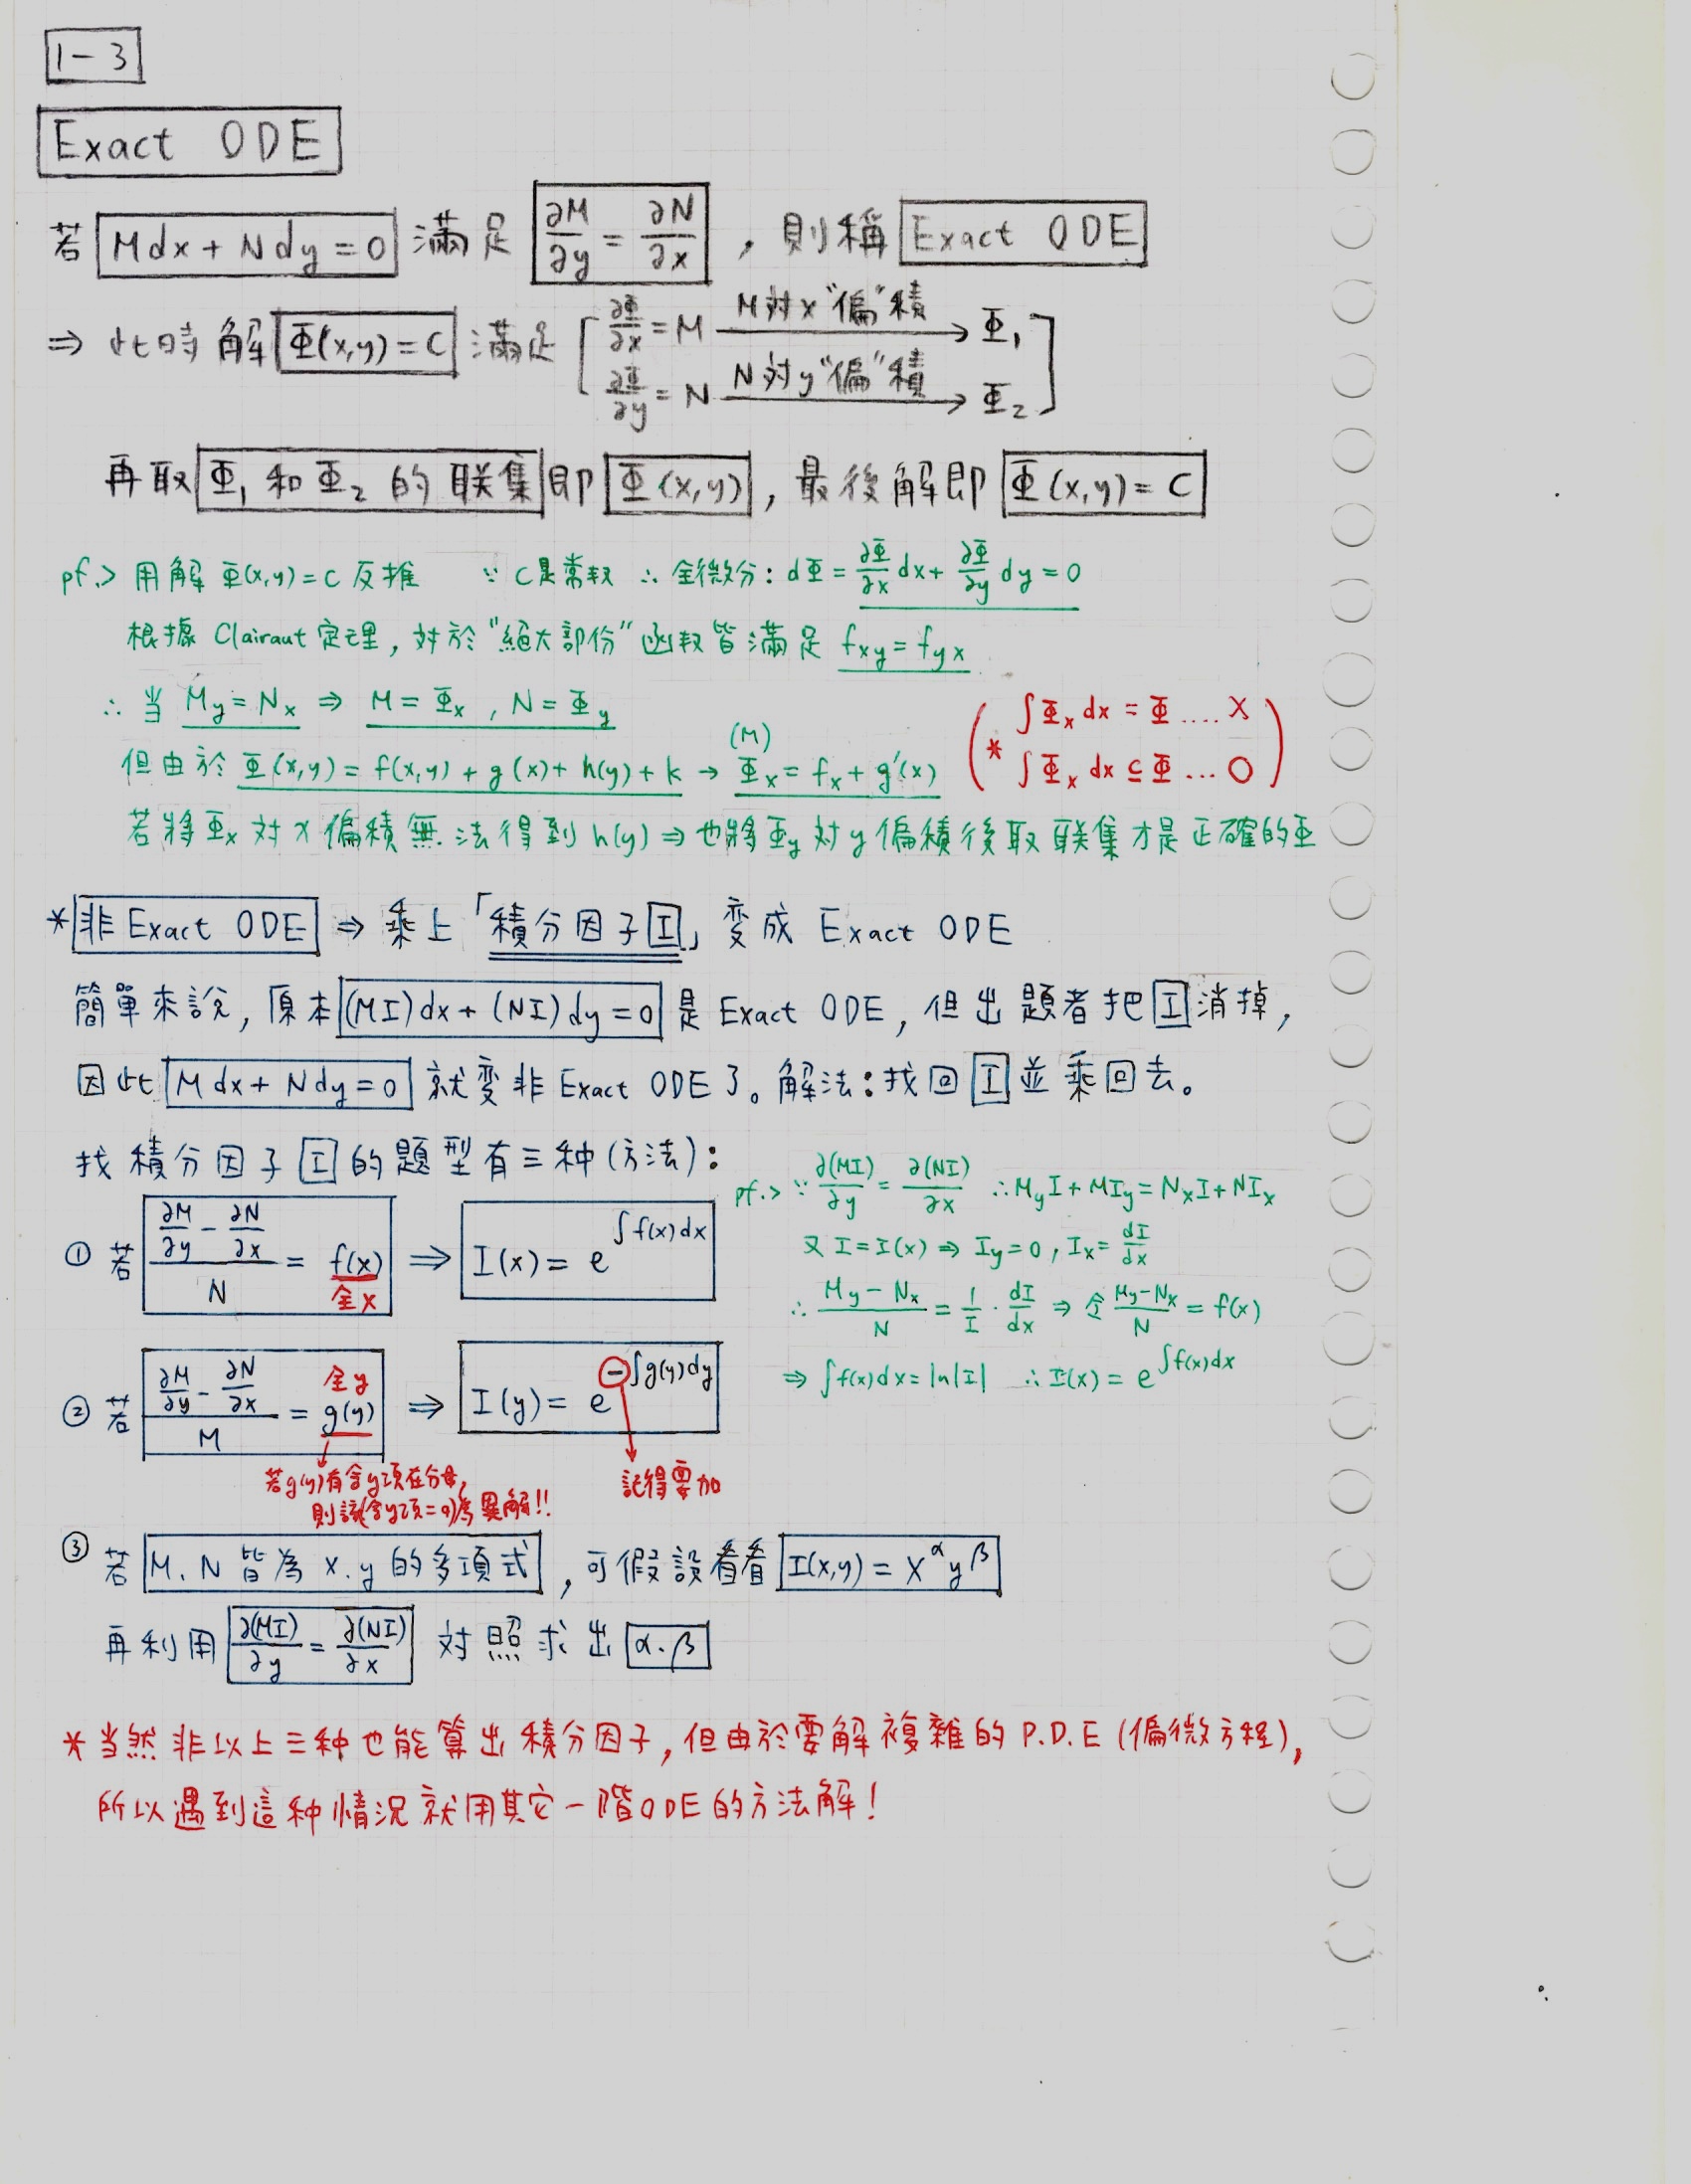 1-3
Exact ODE
若 Mdx + Ndy = 0 滿足 ∂M/∂y = ∂N/∂x ，則稱 Exact ODE
⇒ 此時解 Φ(x,y) = C 滿足 [ ∂Φ/∂x = M M対x“偏”積 → Φ₁
∂Φ/∂y = N N対y“偏”積 → Φ₂ ]
再取 Φ₁ 和 Φ₂ 的联集 即 Φ(x,y) , 最後解即 Φ(x,y) = C
pf.> 用解 Φ(x,y) = C 反推 ∵ C是常数 ∴ 全微分: dΦ = ∂Φ/∂x dx + ∂Φ/∂y dy = 0
根據 Clairaut 定理, 対於“絕大部份”函数皆滿足 fxy = fyx
∴ 当 My = Nx ⇒ M = Φx , N = Φy
但由於 Φ(x,y) = f(x,y) + g(x) + h(y) + k → Φx (M) = fx + g'(x)
( * ∫Φx dx = Φ .... X
∫Φx dx ⊆ Φ ... O )
若將Φx 対 x 偏積無法得到 h(y) ⇒ 也將Φy 対 y 偏積後取联集才是正確的Φ
* 非 Exact ODE ⇒ 乘上「積分因子 I」變成 Exact ODE
簡單來說, 原本 (MI)dx + (NI)dy = 0 是 Exact ODE, 但出題者把 I 消掉,
因此 Mdx + Ndy = 0 就變非 Exact ODE 了。解法：找回 I 並乘回去。
找積分因子 I 的題型有三种 (方法)：
① 若 (∂M/∂y - ∂N/∂x)/N = f(x) 全x ⇒ I(x) = e^∫f(x)dx
② 若 (∂M/∂y - ∂N/∂x)/M = g(y) 全y ⇒ I(y) = e^-∫g(y)dy
若g(y)有含y項在分母,
則該(含y項=0)為異解!!
記得要加
pf.> ∵ ∂(MI)/∂y = ∂(NI)/∂x ∴ MyI + MIy = NxI + NIx
又 I = I(x) ⇒ Iy = 0 , Ix = dI/dx
∴ (My - Nx)/N = 1/I · dI/dx ⇒ 令 (My - Nx)/N = f(x)
⇒ ∫f(x)dx = ln|I| ∴ I(x) = e^∫f(x)dx
③ 若 M. N 皆為 x. y 的多項式 , 可假設看看 I(x,y) = x^α y^β
再利用 ∂(MI)/∂y = ∂(NI)/∂x 対照求出 α. β
* 当然非以上三种也能算出積分因子, 但由於要解複雜的 P.D.E (偏微方程),
所以遇到這种情況就用其它一階ODE的方法解!